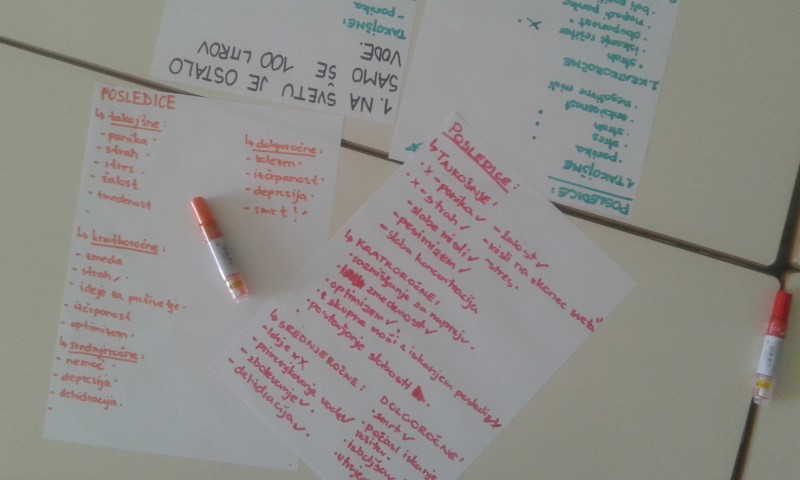 POSLEDICE
↳ takojšne:
- panika
- strah
- stres
- žalost
- zmedenost
-
↳ kratkoročne:
- zmeda
- strah ✓
- ideje za preživetje
- izčrpanost
- optimizem
↳ srednjeročne:
- nemoč
- depresija
- dehidracija
-
↳ dolgoročne:
- bolezen
- izčrpanost
- depresija
- smrt!
1. NA SVETU JE OSTALO
SAMO ŠE 100 LITROV
VODE.
TAKOJŠNE:
- panika
POSLEDICE:
1. TAKOJŠNE
panika
stres
strah
anksioznost
negativne misli
2. KRATKOROČNE
* strah
* iskanje rešitev
* obupanost
* napadi panike
POSLEDICE:
↳ TAKOJŠNJE!
x - panika ✓
x - strah ✓
- slabe misli ✓
- pesimizem ✓
- slaba koncentracija
- žalost ✓
- misli na "konec sveta"
- stres
↳ KRATKOROČNE:
• razmišljanje za naprej ✓
• zmedenost ✓
• optimizem ✓
• skupna moč z iskanjem
• postavljanje
↳ SREDNJEROČNE:
- ideje xx
- vode ✓
- zbolevanje ✓
- dehidracija ✓
DOLGOROČNE!
• smrt ✓
• počasi iskanje
rešitev